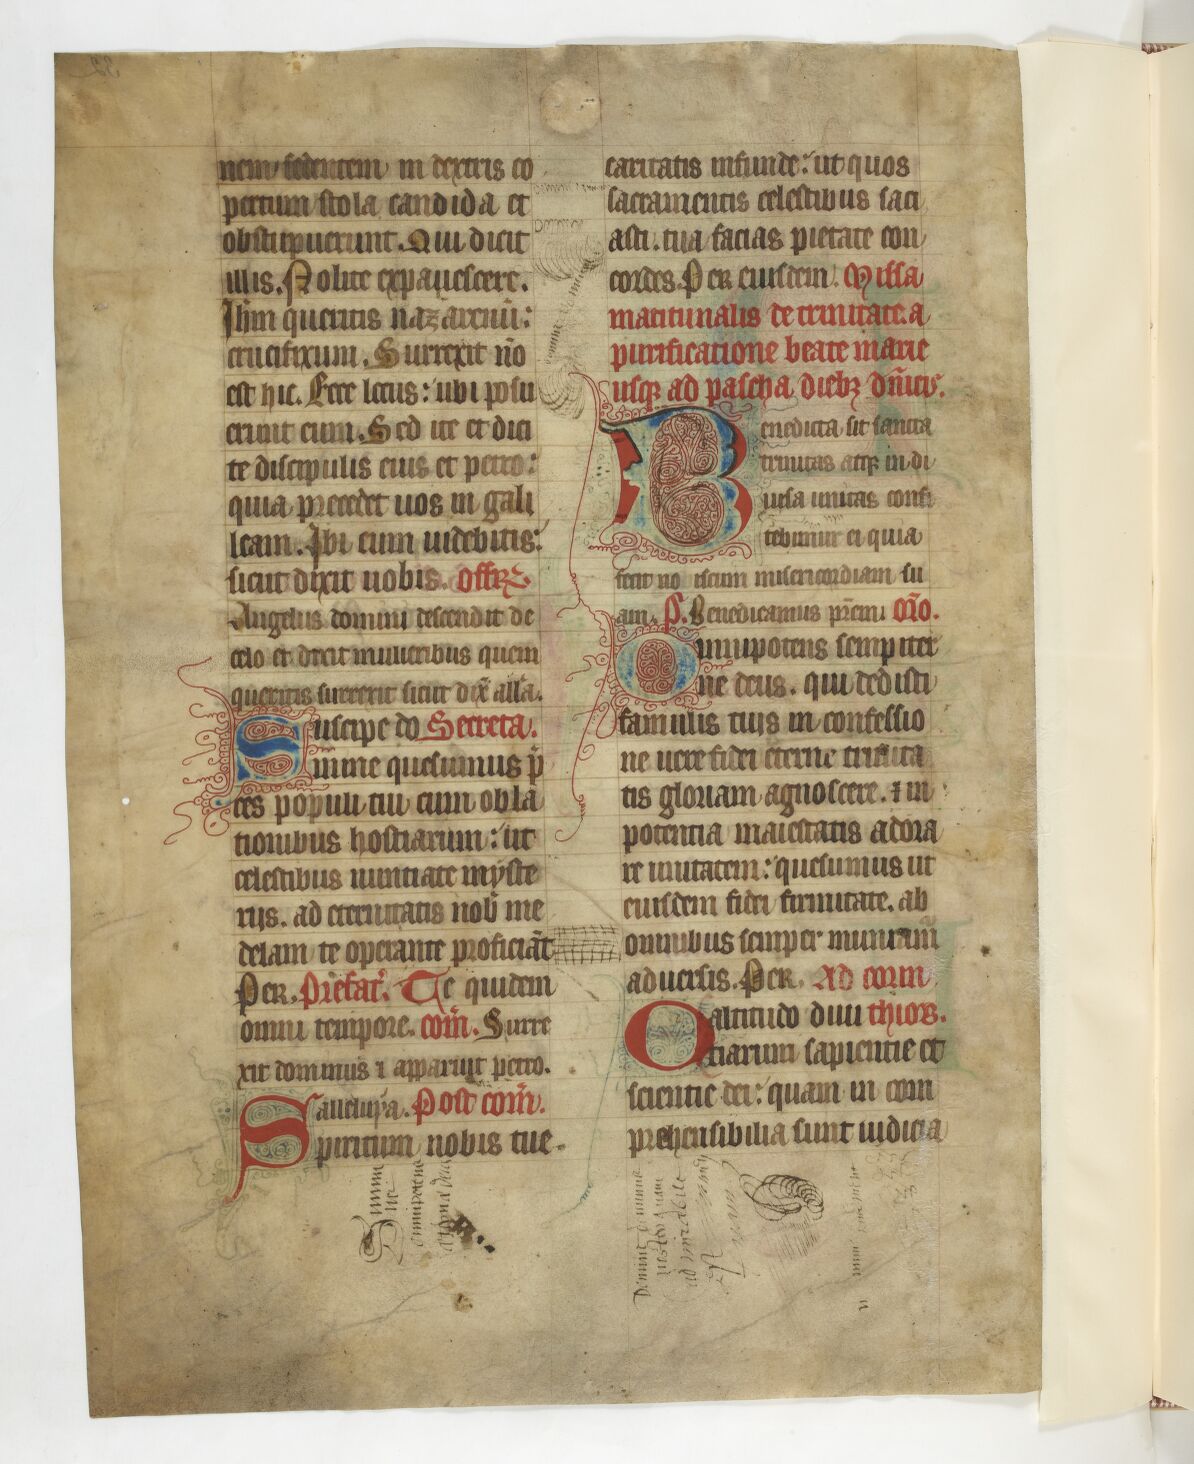 nem sedentem in dextris co
pertum stola candida et
obstupuerunt. Qui dicit
illis. Nolite expauescere.
Jhm queritis nazarenū:
crucifixum. Surrexit nō
est hic. Ecce locus: ubi posu
erunt eum. Sed ite et dici
te discipulis eius et petro:
quia precedet uos in gali
leam. Jbi eum uidebitis:
sicut dixit uobis. Offꝝ
Angelus domini descendit de
celo et dixit mulieribus quem
queritis surrexit sicut dix̄ all̄a.
Suscipe do Secreta.
mine quesumus p̄
ces populi tui cum obla
tionibus hostiarum: ut
celestibus iuntiate myste
rijs. ad eternitatis nob̄ me
delam te operante proficiāt
Per. Prefac̄. Te quidem
omni tempore. com̄. Surre
xit dominus ⁊ apparuit petro.
alleluya. Post com̄.
Spiritum nobis tue
caritatis infunde: ut quos
sacramentis celestibus saci
asti. tua facias pietate con
cordes. Per eiusdem. Missa
matitunalis de trinitate. a
purificatione beate marie
usqꝫ ad pascha diebꝫ dn̄icis.
Benedicta sit sancta
trinitas atqꝫ in di
uisa unitas confi
tebimur ei quia
fecit no iscum misericordiam su
am. P. Benedicamus pr̄em. Or̄o.
Omnipotens sempiter
ne deus. qui dedisti
famulis tuis in confessio
ne uere fidei eterne trinita
tis gloriam agnoscere. ⁊ in
potentia maiestatis adora
re unitatem: quesumus ut
eiusdem fidei firmitate. ab
omnibus semper muniam̄
aduersis. Per. Ad corin
O altitudo diui thios.
tiarum sapientie et
scientie dei: quam in com
prehensibilia sunt iudicia
omnipotens